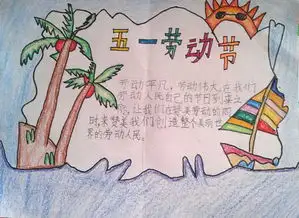 五一劳动节
劳动平凡，劳动伟大。在我们
劳动人民自己的节日到来之
际，让我们在赞美劳动的同
时，来赞美我们创造整个美丽世
界的劳动人民。